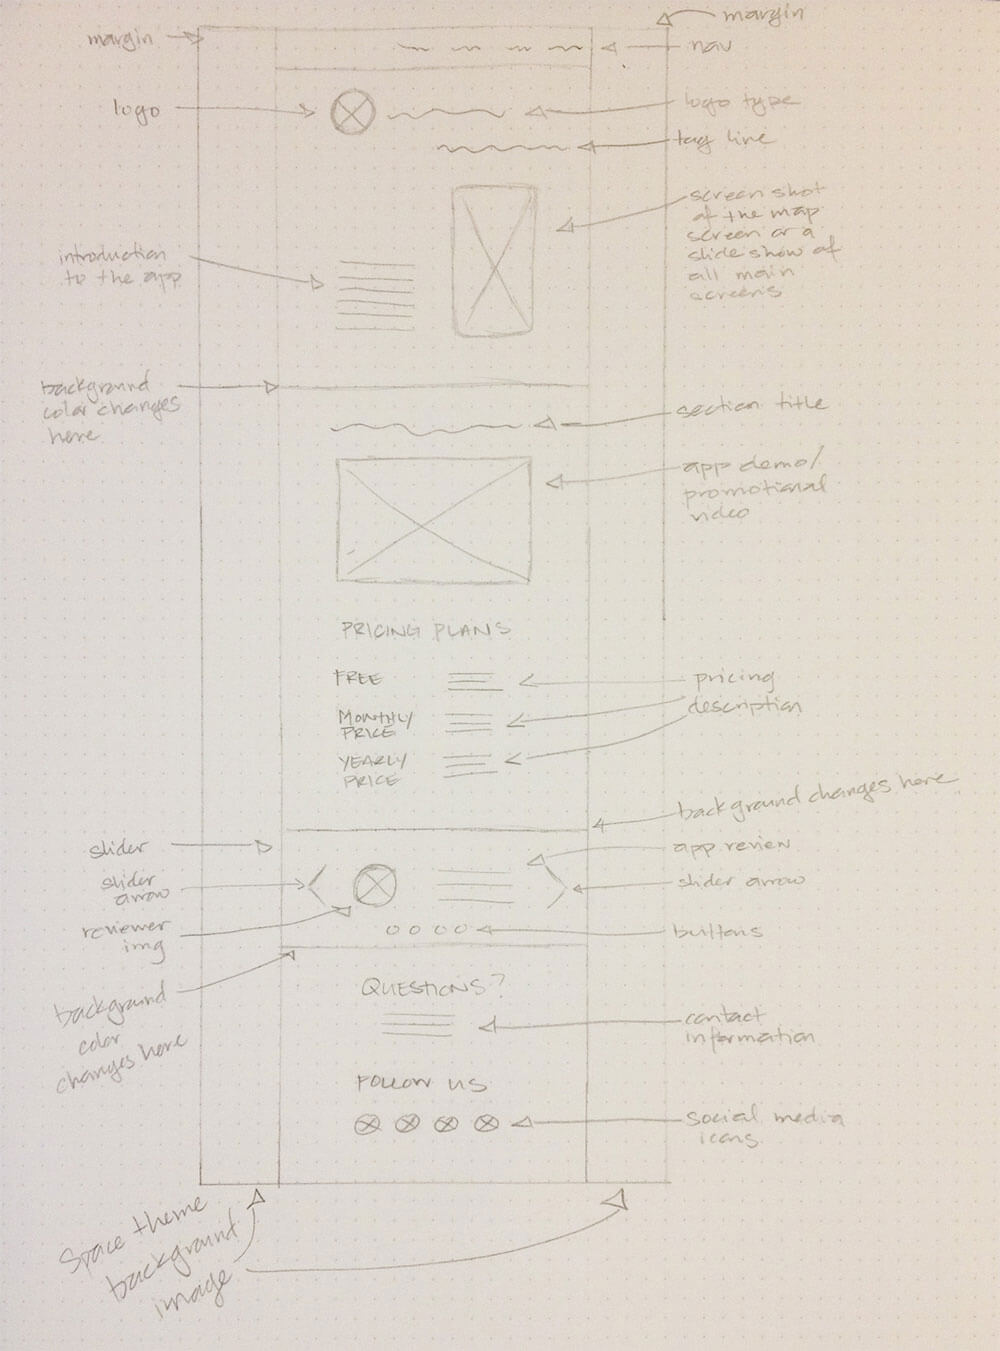 margin
margin
nav
logo
logo type
tag line
screen shot
of the map
screen or a
slide show of
all main
screens
introduction
to the app
background
color changes
here
section title
app demo/
promotional
video
PRICING PLANS
FREE
MONTHLY
PRICE
YEARLY
PRICE
pricing
description
background changes here
slider
slider
arrow
reviewer
img
app review
slider arrow
buttons
background
color
changes here
QUESTIONS?
contact
information
FOLLOW US
social media
icons
Space theme
background
image